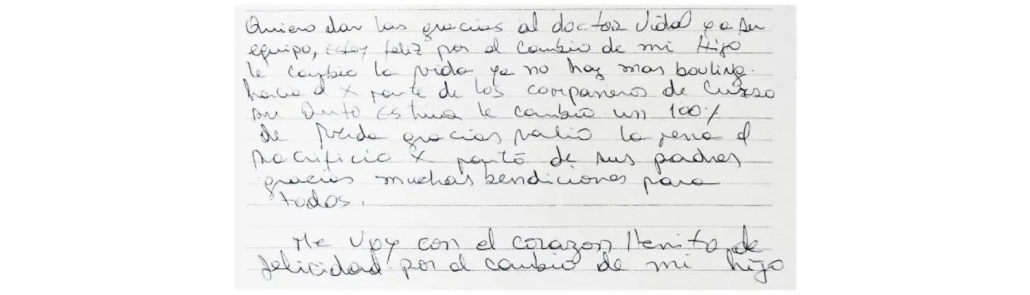 Quiero dar las gracias al doctor Vidal y a su
equipo, Estoy feliz por el cambio de mi Hijo
le cambio la vida ya no hay mas bouling.
hacia el x parte de los compañeros de Curso
su Auto Estima le cambio un 100%
de vida gracias valio la pena el
sacrificio x parte de sus padres
gracias muchas bendiciones para
todos.
Me voy con el corazon llenito de
felicidad por el cambio de mi hijo